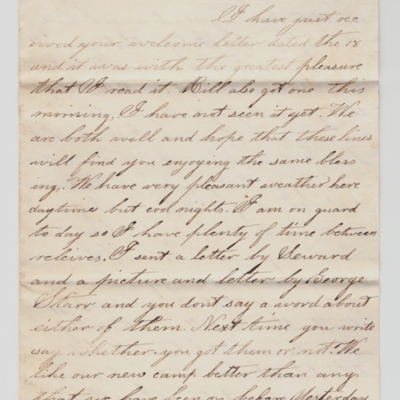 I have just rec
ieved your welcome letter dated the 18
and it was with the greatest pleasure
that I read it. Will also got one this
morning, I have not seen it yet. We
are both well and hope that these lines
will find you enjoying the same bless
ing. We have very pleasant weather here
daytime but cool nights. I am on guard
to day so I have plenty of time between
releives. I sent a letter by Seward
and a picture and letter by George
Starr and you dont say a word about
either of them. Next time you write
say whether you got them or not. We
like our new camp better than any
that we have been on before Yesterday